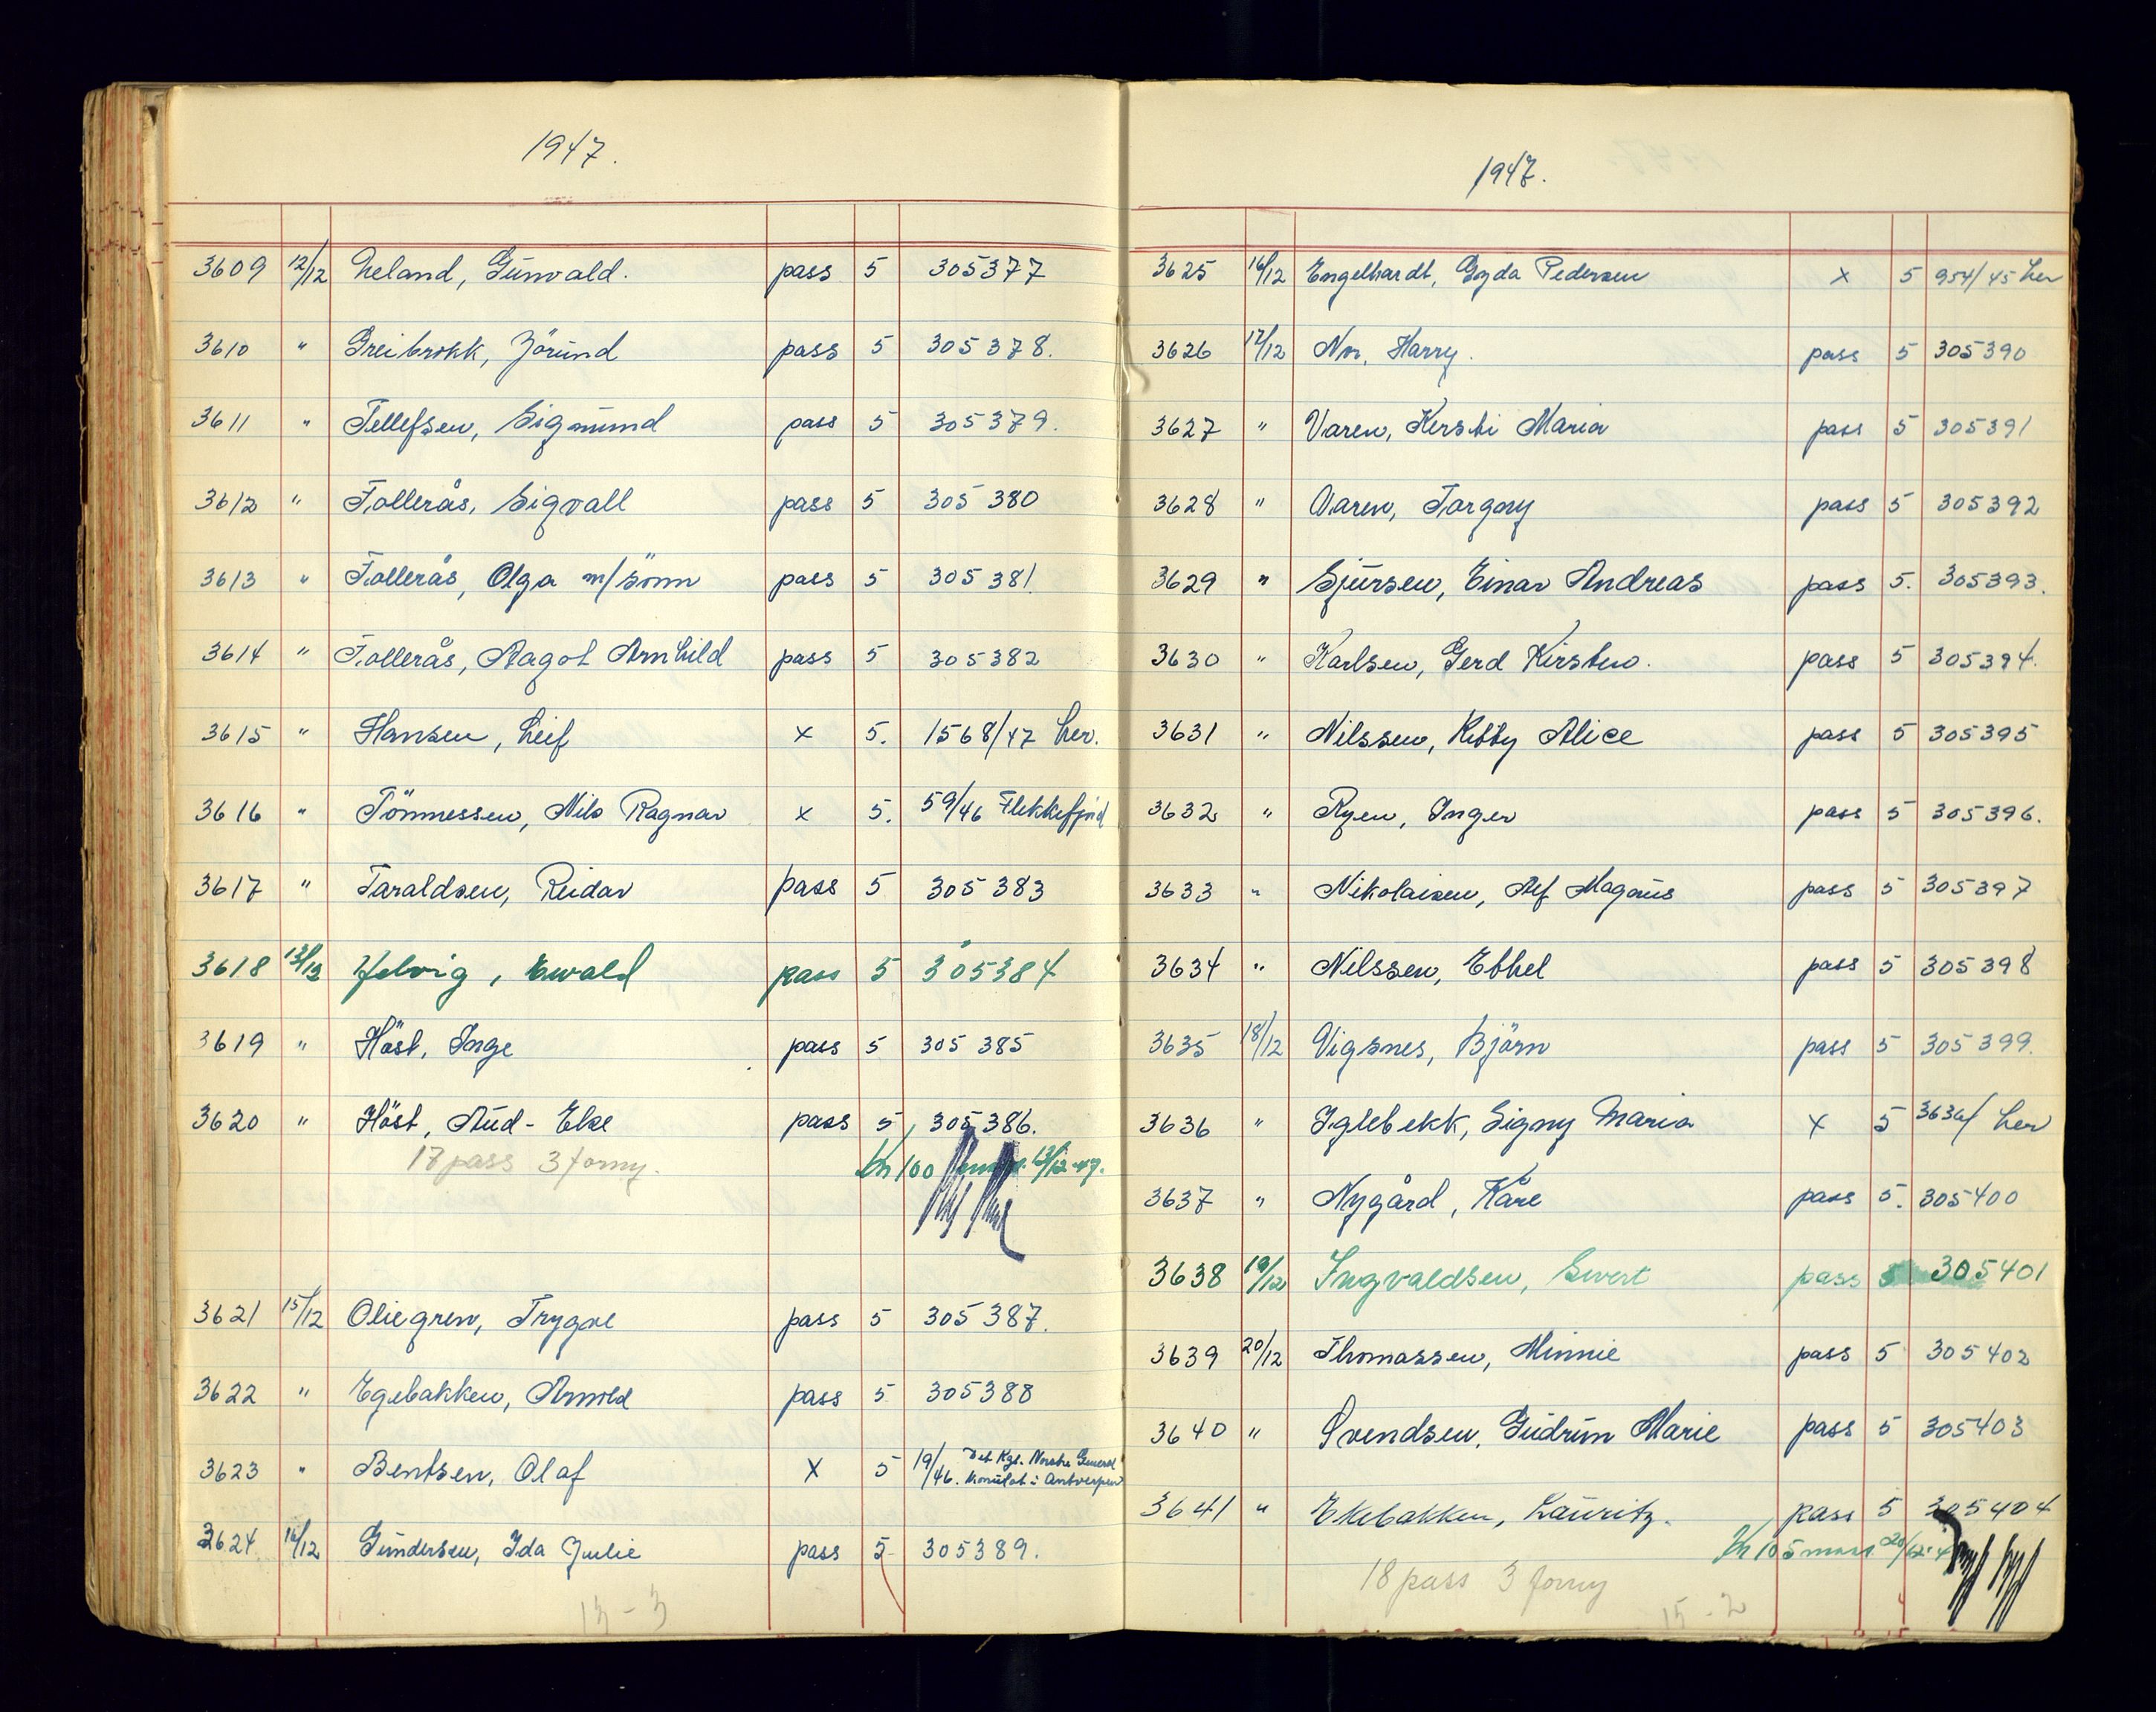 1947.
3609 12/12 Leland, Gunvald. pass 5 305377
3610 " Greibrokk, Jörund pass 5 305378.
3611 " Tellefsen, Sigmund pass 5 305379.
3612 " Tollerås, Sigvall pass 5 305380
3613 " Tollerås, Olga m/sönn pass 5 305381.
3614 " Tollerås, Aagot Arnhild pass 5 305382
3615 " Hansen, Leif x 5. 1568/47 her.
3616 " Tönnessen, Nils Ragnar x 5. 59/46 Flekkefjord
3617 " Taraldsen, Reidar pass 5 305383
3618 13/12 Helvig, Ewald pass 5 305384
3619 " Höst, Inge pass 5 305385
3620 " Höst, Aud-Else pass 5 305386.
17 pass 3 forny. Kr 100 13/12-47.
3621 15/12 Oliegren, Trygve pass 5 305387.
3622 " Egebakken, Arnold pass 5 305388
3623 " Bentsen, Olaf X 5 19/46. Det Kgl. Norske General Konsulat i Antwerpen
3624 16/12 Gundersen, Ida Julie pass 5 305389.
13-3
1947.
3625 16/12 Engelhardt, Gyda Pedersen x 5 954/45 her
3626 17/12 Harry. pass 5 305390
3627 " Varen, Kersti Maria pass 5 305391
3628 " Varen, Torgny pass 5 305392
3629 " Sjursen, Einar Andreas pass 5. 305393.
3630 " Karlsen, Gerd Kirsten. pass 5 305394.
3631 " Nilssen, Alice pass 5 305395
3632 " Ryen, Inger pass 5 305396.
3633 " Nikolaisen, Alf Magnus pass 5 305397
3634 " Nilssen, Ethel pass 5 305398
3635 18/12 Vigsnes, Björn pass 5 305399.
3636 " Iglebekk, Signy Maria x 5 3636/ her
3637 " Nygård, Kåre pass 5. 305400
3638 19/12 Ingvaldsen, Sivert pass 5 305401
3639 20/12 Thomassen, Minnie pass 5 305402
3640 " Svendsen, Gudrun Marie pass 5 305403
3641 " Ekebakken, Lauritz. pass 5 305404
Kr 105 20/12
18 pass 3 forny
15-2